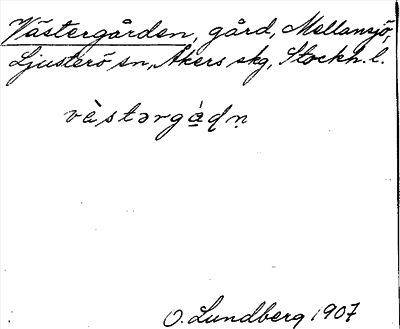 Västergården, gård, Mellansjö,
Ljusterö sn, Åkers skg, Stockh. l.
vä̀stərgá̱ḍṇ
O. Lundberg 1907